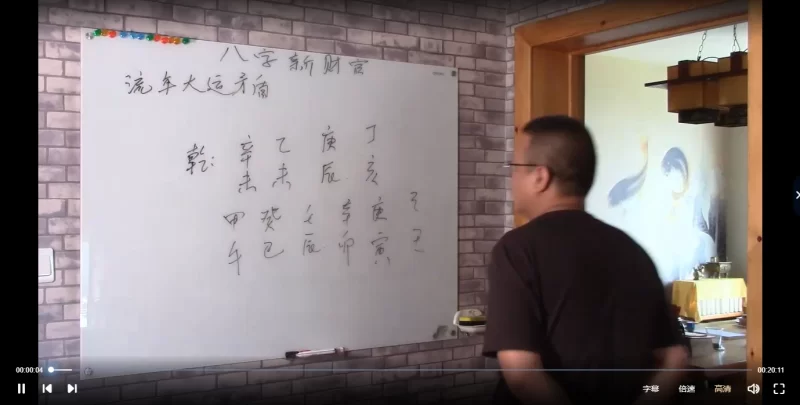 八字新财官
流年大运矛盾
乾: 辛 乙 庚 丁
未 未 辰 亥
甲 癸 壬 辛 庚 己
午 巳 辰 卯 寅 丑
00:00:04 00:20:11
字幕 倍速 高清